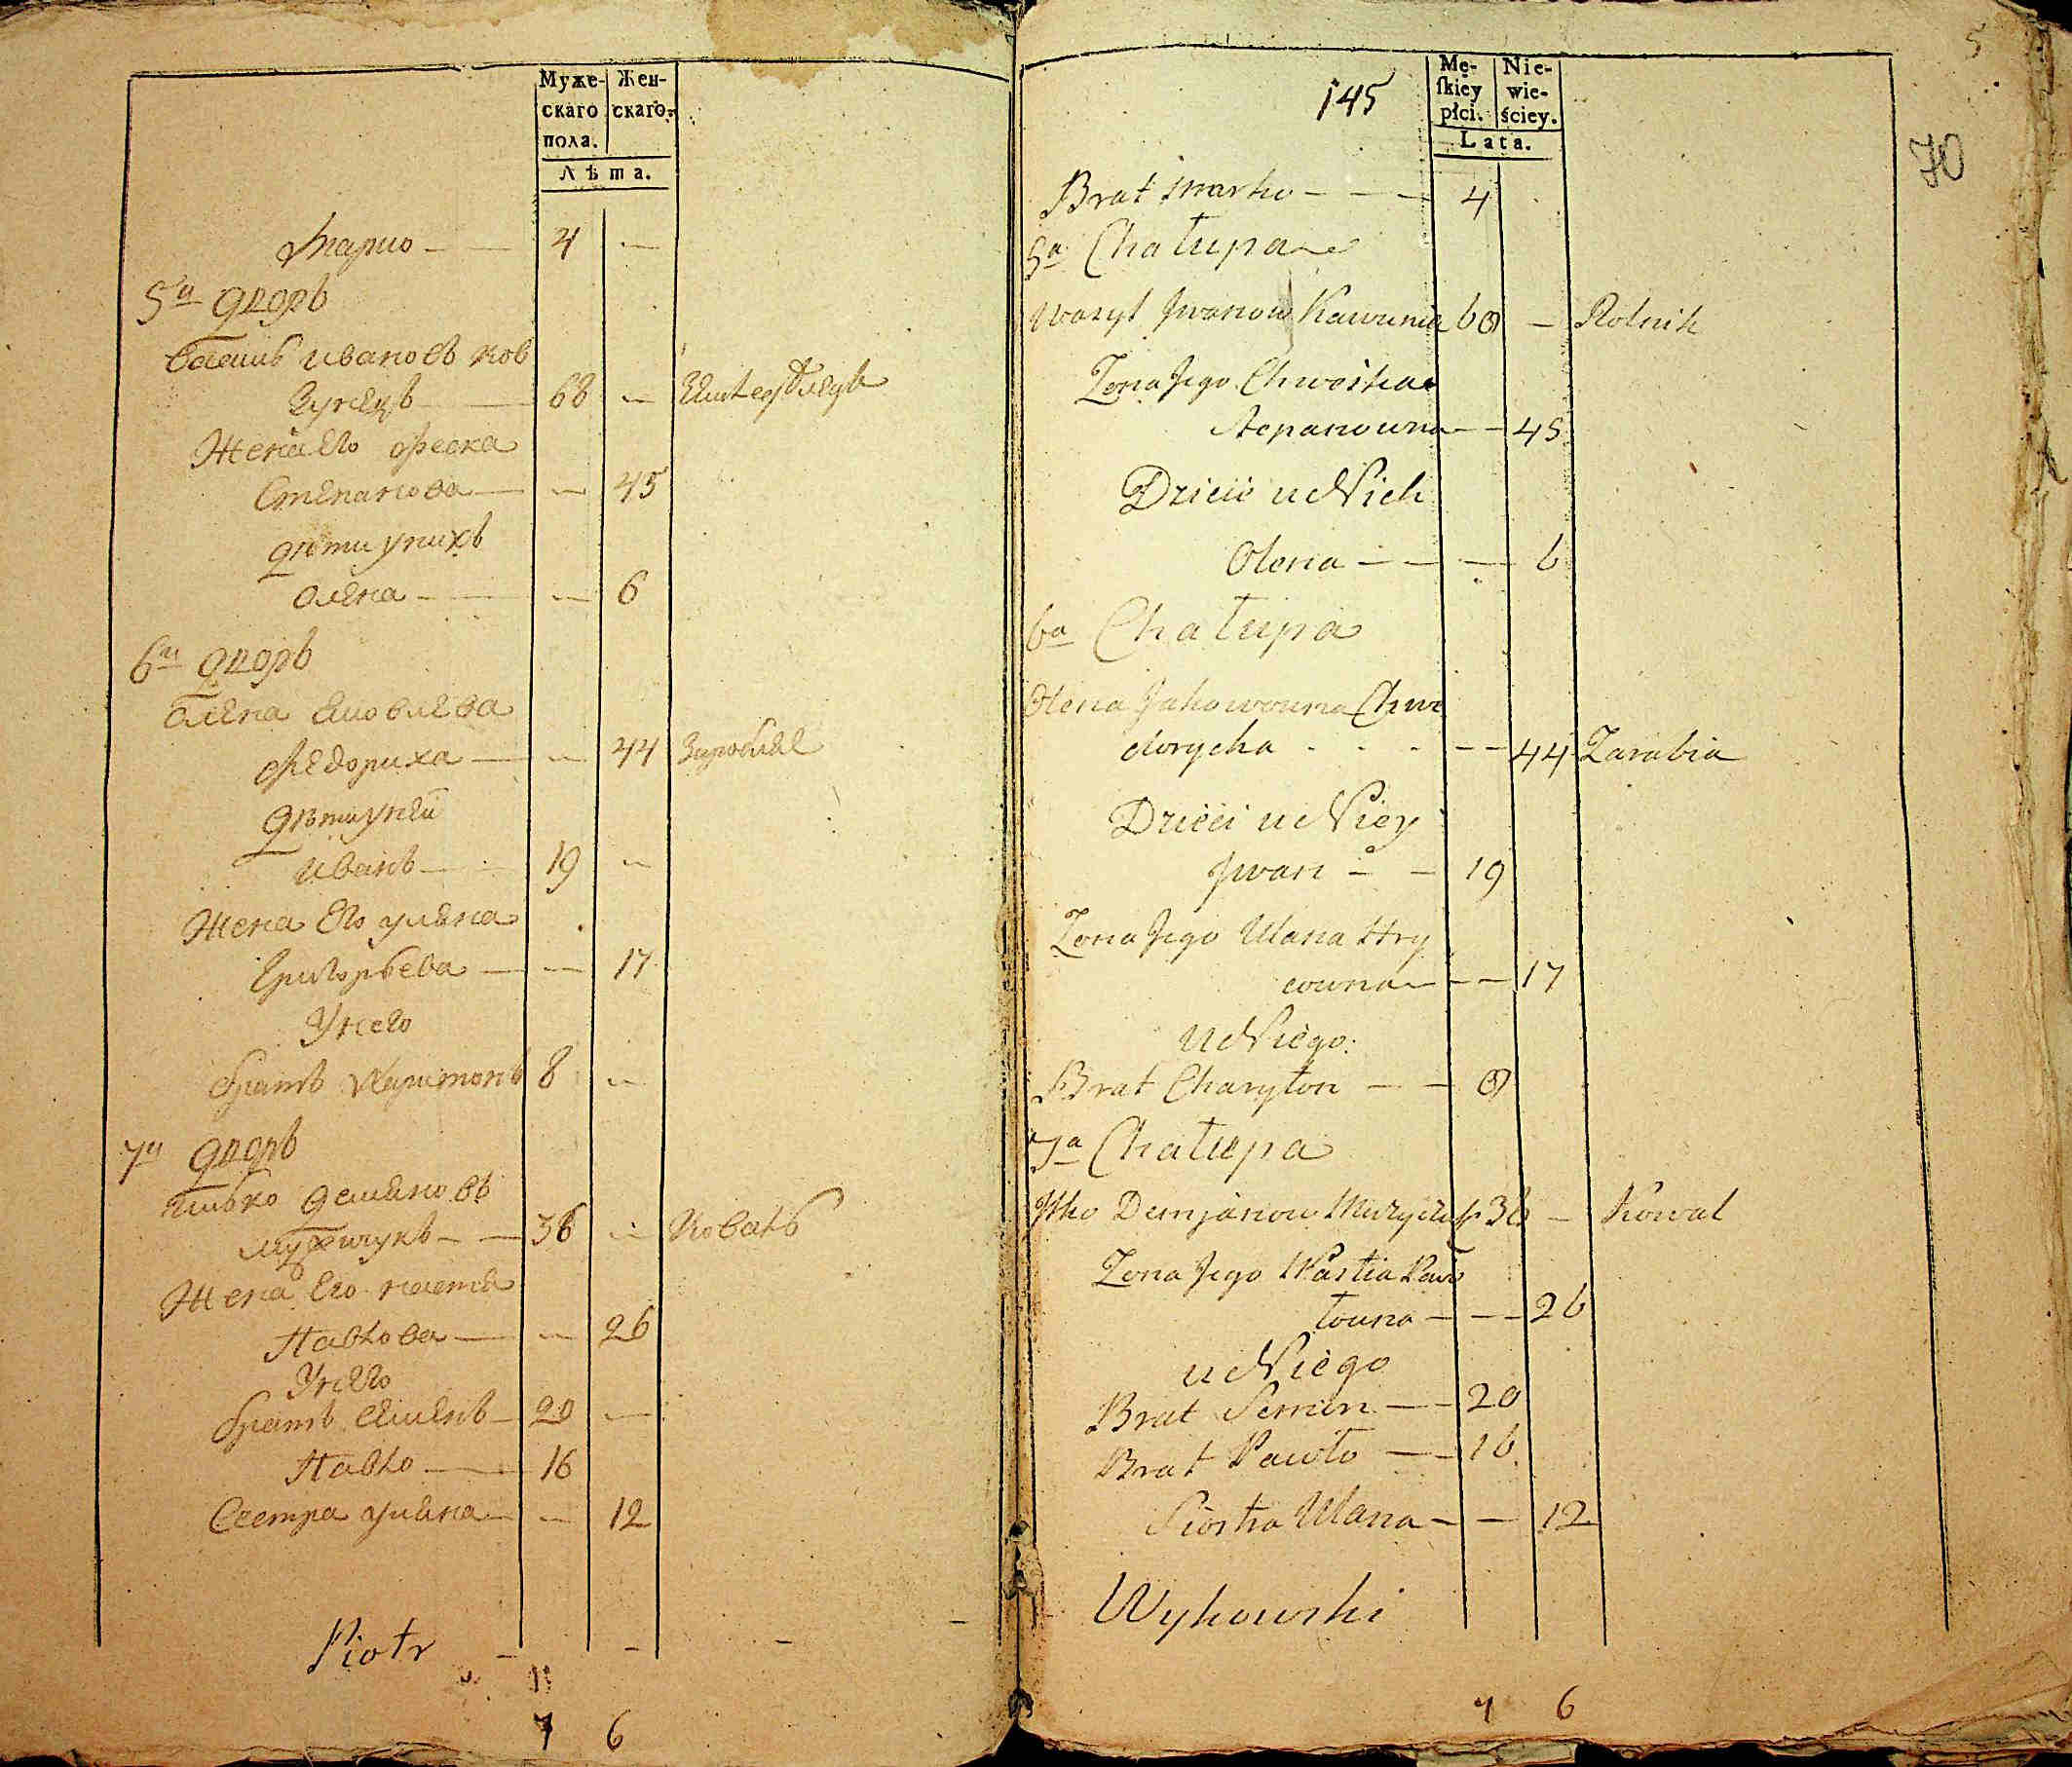 Муже-
скаго
пола.
Жен-
скаго.
Лѣта.
Марко — — 4 —
5й дворъ
Василь Ивановъ Ков
68 — Земледѣлецъ
Жена его Феска
Степанова — — 45
дѣти у нихъ
Олена — — — 6
6й дворъ
Олена Яковлева
Федориха — — 44 Заробляе
Дѣти у ней
Иванъ — 19 —
Жена его Уляна
Григорьева — — 17
У него
братъ Харитонъ 8 —
7й дворъ
Ицько Демяновъ
Музичукъ — 36 — Коваль
Жена его Настя
Павлова — — 26
У него
братъ Семенъ — 20 —
Павло — 16
Сестра Уляна — — 12
Piotr
7 6
5
145
70
Mę-
ſkiey
płci.
Nie-
wie-
ściey.
Lata.
Brat Marko — — — 4
5a Chałupa
Wasyl Jwanow Kawunia 68 — Rolnik
Żona Jego Chwośka
Stepanowna — — 45
Dzieci u Nich
Olena — — — 6
6a Chałupa
Olena Jakowowna Chwe
dorycha — — 44 Zarabia
Dzieci u Niey
Jwan — — 19
Żona Jego Ulana Hry
cowna — — 17
u Niego
Brat Charyton — — 8
7a Chałupa
Jtko Demjanow Muzyczuk 36 — Kowal
Żona Jego Nastia Paw
łowna — — — 26
u Niego
Brat Semen — — 20
Brat Pawło — — 16
Siostra Ulana — — 12
Wyhowski
7 6